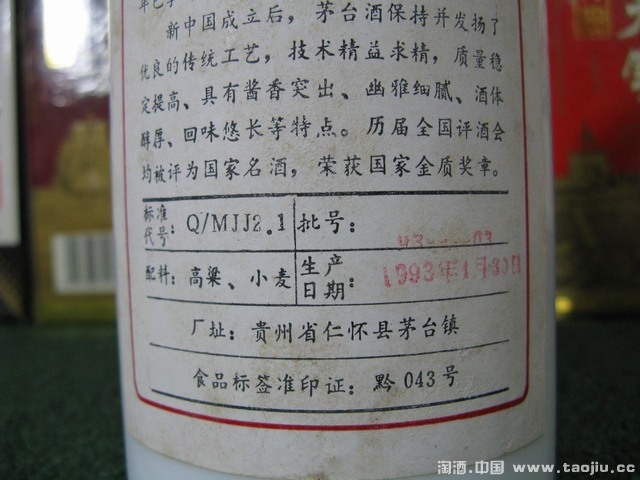 新中国成立后，茅台酒保持并发扬了
优良的传统工艺，技术精益求精，质量稳
定提高、具有酱香突出、幽雅细腻、酒体
醇厚、回味悠长等特点。历届全国评酒会
均被评为国家名酒，荣获国家金质奖章。
标准代号：Q/MJJ2.1 批号：
配料：高粱、小麦 生产日期：1993年1月30日
厂址：贵州省仁怀县茅台镇
食品标签准印证：黔043号
淘酒.中国 www.taojiu.cc